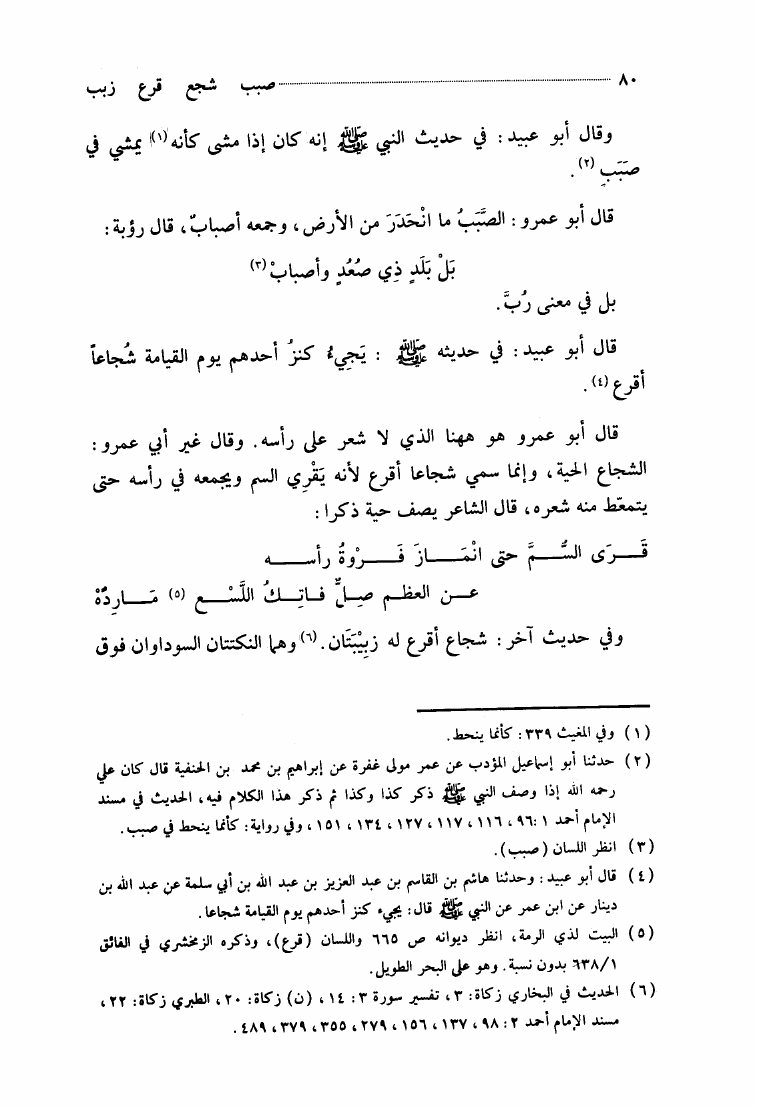 ٨٠ صبب شجع قرع زبب
وقال أبو عبيد: في حديث النبي ﷺ إنه كان إذا مشى كأنه(١) يمشي في
صَبَبٍ(٢).
قال أبو عمرو: الصَّبَبُ ما انْحَدَرَ من الأرض، وجمعه أصبابٌ، قال رؤبة:
بَلْ بَلَدٍ ذِي صُعُدٍ وأصبابْ(٣)
بل في معنى رُبَّ.
قال أبو عبيد: في حديثه ﷺ : يَجِيءُ كنزُ أحدهم يوم القيامة شُجاعاً
أقرع(٤).
قال أبو عمرو هو ههنا الذي لا شعر على رأسه. وقال غير أبي عمرو:
الشجاع الحية، وإنما سمي شجاعا أقرع لأنه يَقْرِي السم ويجمعه في رأسه حتى
يتمعّط منه شعره، قال الشاعر يصف حية ذكرا:
قَـرَى السُّـمَّ حتى انْمَـازَ فَـرْوةُ رأسـه
عـن العظـم صِـلٌّ فـاتِـكُ اللَّسْـعِ (٥) مَـارِدُهْ
وفي حديث آخر: شجاع أقرع له زبِيْبَتَان.(٦) وهما النكتتان السوداوان فوق
(١) وفي المغيث ٣٣٩: كأنما ينحط.
(٢) حدثنا أبو إسماعيل المؤدب عن عمر مولى غفرة عن إبراهيم بن محمد بن الحنفية قال كان علي
رحمه الله إذا وصف النبي ﷺ ذكر كذا وكذا ثم ذكر هذا الكلام فيه، الحديث في مسند
الإمام أحمد ١ :٩٦، ١١٦، ١١٧، ١٢٧، ١٣٤، ١٥١، وفي رواية: كأنما ينحط في صبب.
(٣) انظر اللسان (صبب).
(٤) قال أبو عبيد: وحدثنا هاشم بن القاسم بن عبد العزيز بن عبد الله بن أبي سلمة عن عبد الله بن
دينار عن ابن عمر عن النبي ﷺ قال: يجيء كنز أحدهم يوم القيامة شجاعا.
(٥) البيت لذي الرمة، انظر ديوانه ص ٦٦٥ واللسان (قرع)، وذكره الزمخشري في الفائق
٦٣٨/١ بدون نسبة. وهو على البحر الطويل.
(٦) الحديث في البخاري زكاة: ٣، تفسير سورة ٣: ١٤، (ن) زكاة: ٢٠، الطبري زكاة: ٢٢،
مسند الإمام أحمد ٢: ٩٨، ١٣٧، ١٥٦، ٢٧٩، ٣٥٥، ٣٧٩، ٤٨٩.